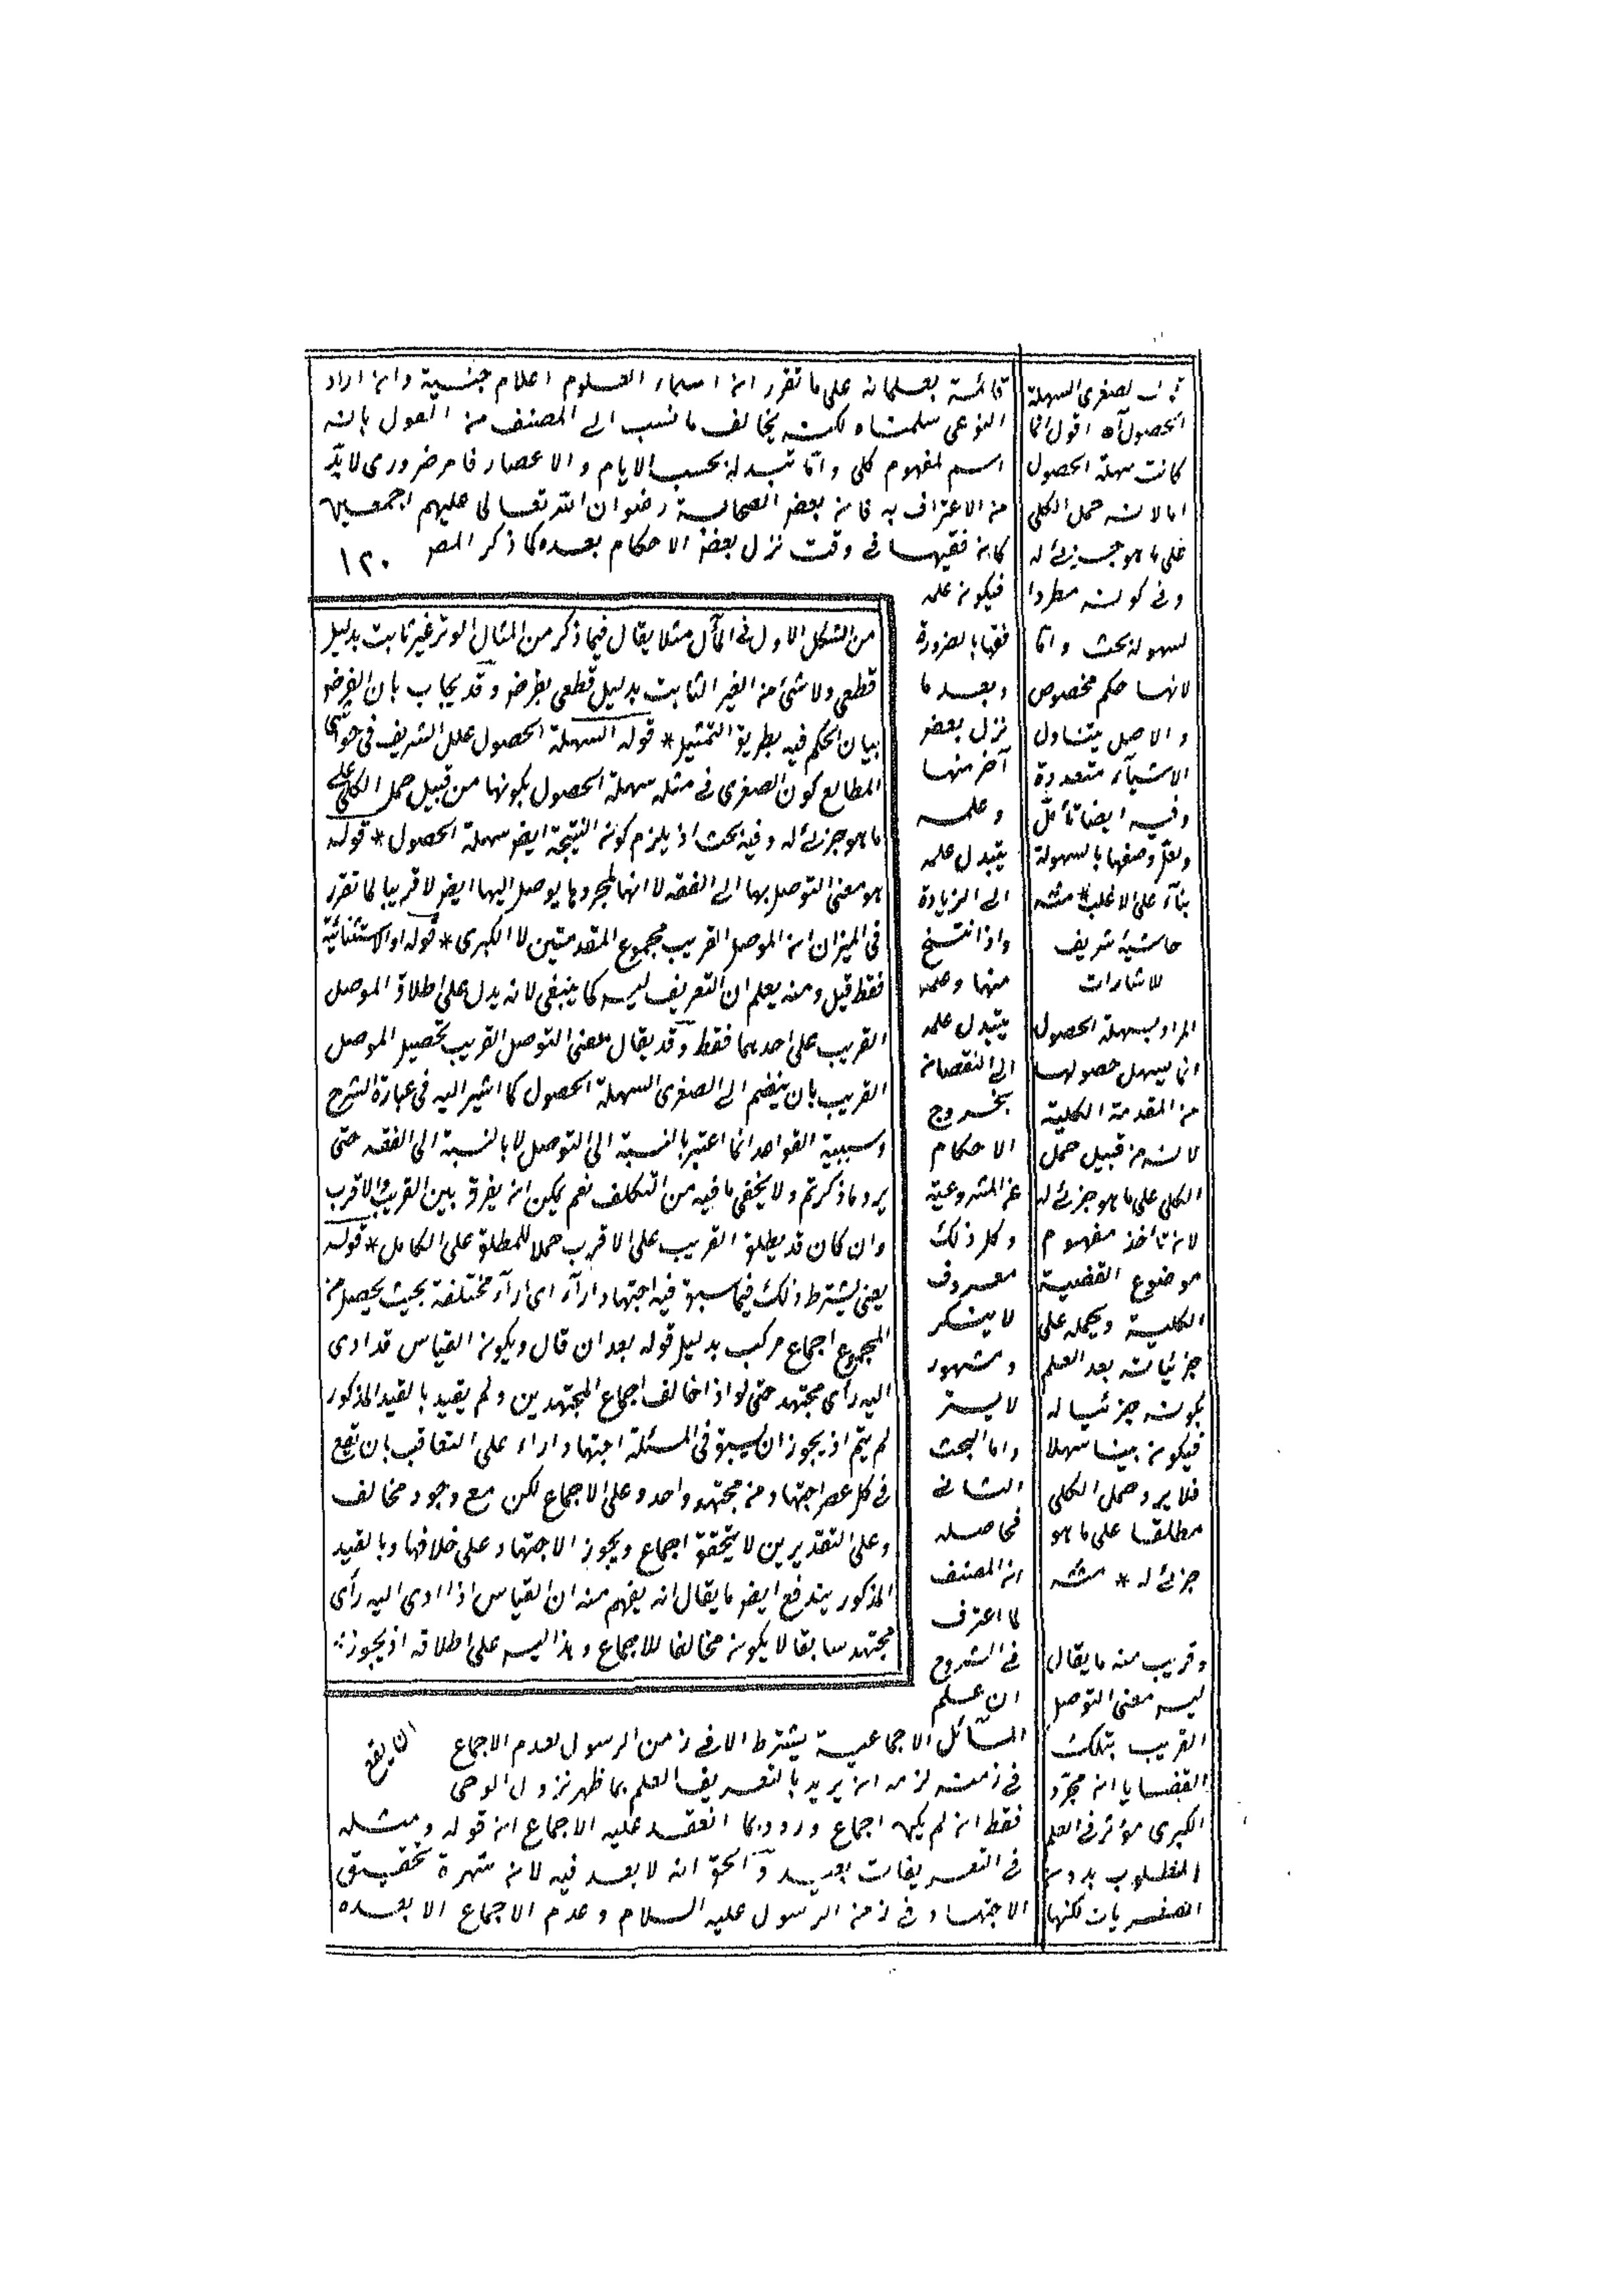 قائمة بعلمانه على ما تقرر ان اسماء العلوم اعلام جنسية وان اراد
النوعى سلمناه لكنه يخالف ما نسب الى المصنف من القول بانه
اسم لمفهوم كلى واما تبدله بحسب الايام والاعصار فامر ضرورى لا بد
من الاعتراف به فان بعض الصحابة رضوان الله تعالى عليهم اجمعين
كان فقيها فى وقت نزل بعض الاحكام بعده كما ذكر المص
١٢٠
فيكون علمه
فقها بالضرورة
وبعد ما
نزل بعض
آخر منها
وعلمه
يتبدل علمه
الى الزيادة
واذا انتسخ
منها وعلمه
يتبدل علمه
الى النقصان
بخروج
الاحكام
عن المشروعية
وكل ذلك
معروف
لا ينكر
ومشهور
لا يستر
واما البحث
الثانى
فحاصله
ان المصنف
لما اعترف
فى الشروح
ان علم
المسائل الاجماعية يشترط الا فى زمن الرسول لعدم الاجماع
فى زمنه لزمه ان يريد بالتعريف العلم بما ظهر نزول الوحى
فقط ان لم يكن اجماع وروده بما انعقد عليه الاجماع ان قوله ومثله
فى التعريفات بعيد والحق انه لا بعد فيه لان شهرة تحقيق
الاجتهاد فى زمن الرسول عليه السلام وعدم الاجماع الا بعده
من الشكل الاول فى المآل مثلا يقال فيما ذكر من المثال الوتر غير ثابت بدليل
قطعى ولا شئ من الغير الثابت بدليل قطعى بفرض وقد يجاب بان الغرض
بيان الحكم فيه بطريق التمثيل * قوله السهلة الحصول علل الشريف فى حواشى
المطالع كون الصغرى فى مثله سهلة الحصول بكونها من قبيل حمل الكلى على
ما هو جزئى له وفيه بحث اذ يلزم كون النتيجة ايض سهلة الحصول * قوله
هو معنى التوصل بها الى الفقه لا انها بمجردها يوصل اليها ايض لا قريبا لما تقرر
فى الميزان ان الموصل القريب مجموع المقدمتين لا الكبرى * قوله او الاستثنائية
فقط قيل ومنه يعلم ان التعريف ليس كما ينبغى لانه يدل على اطلاق الموصل
القريب على احدهما فقط وقد يقال معنى التوصل القريب تحصيل الموصل
القريب بان ينضم الى الصغرى السهلة الحصول كما اشير اليه فى عبارة الشرح
وسببية القواعد انما اعتبر بالنسبة الى التوصل لا بالنسبة الى الفقه حتى
يرد ما ذكرتم ولا يخفى ما فيه من التكلف نعم يمكن ان يفرق بين القريب والاقرب
وان كان قد يطلق القريب على الاقرب حملا للمطلق على الكامل * قوله
يعنى يشترط ذلك فيما سبق فيه اجتهاد آراء اى آراء مختلفة بحيث يحصل من
المجموع اجماع مركب بدليل قوله بعد ان قال ويكون القياس قد ادى
اليه رأى مجتهد حتى لو اذا خالف اجماع المجتهدين ولم يقيد بالقيد المذكور
لم يتم اذ يجوز ان يسبق فى المسئلة اجتهاد اراء على التعاقب بان تقع
فى كل عصر اجتهاد من مجتهد واحد وعلى الاجماع لكن مع وجود مخالف
وعلى التقديرين لا يتحقق اجماع ويجوز الاجتهاد على خلافها وبالقيد
المذكور يندفع ايض ما يقال انه يفهم منه ان القياس اذا ادى اليه رأى
مجتهد سابقا لا يكون مخالفا للاجماع وهذا ليس على اطلاقه اذ يجوز
لصغرى السهلة
الحصول آه اقول انما
كانت سهلة الحصول
اما لانه حمل الكلى
على ما هو جزئى له
وفى كونه مطردا
لسهولة بحث واما
لانها حكم مخصوص
والاصل يتناول
الاشياء متعددة
وفيه ايضا تأمل
ولعل وصفها بالسهولة
بناء على الاغلب * منه
حاشية شريف
للاشارات
المراد بسهلة الحصول
انما يسهل حصولها
من المقدمة الكلية
لانه من قبيل حمل
الكلى على ما هو جزئى له
لان تأخذ مفهوم
موضوع القضية
الكلية ويحمله على
جزئياته بعد العلم
بكونه جزئيا له
فيكون بينا سهلا
فلا يرد حمل الكلى
مطلقا على ما هو
جزئى له * منه
وقريب منه ما يقال
ليس معنى التوصل
القريب بتلك
القضايا انه مجرد
الكبرى مؤثر فى العلم
المطلوب بدون
الصغريات لكنها